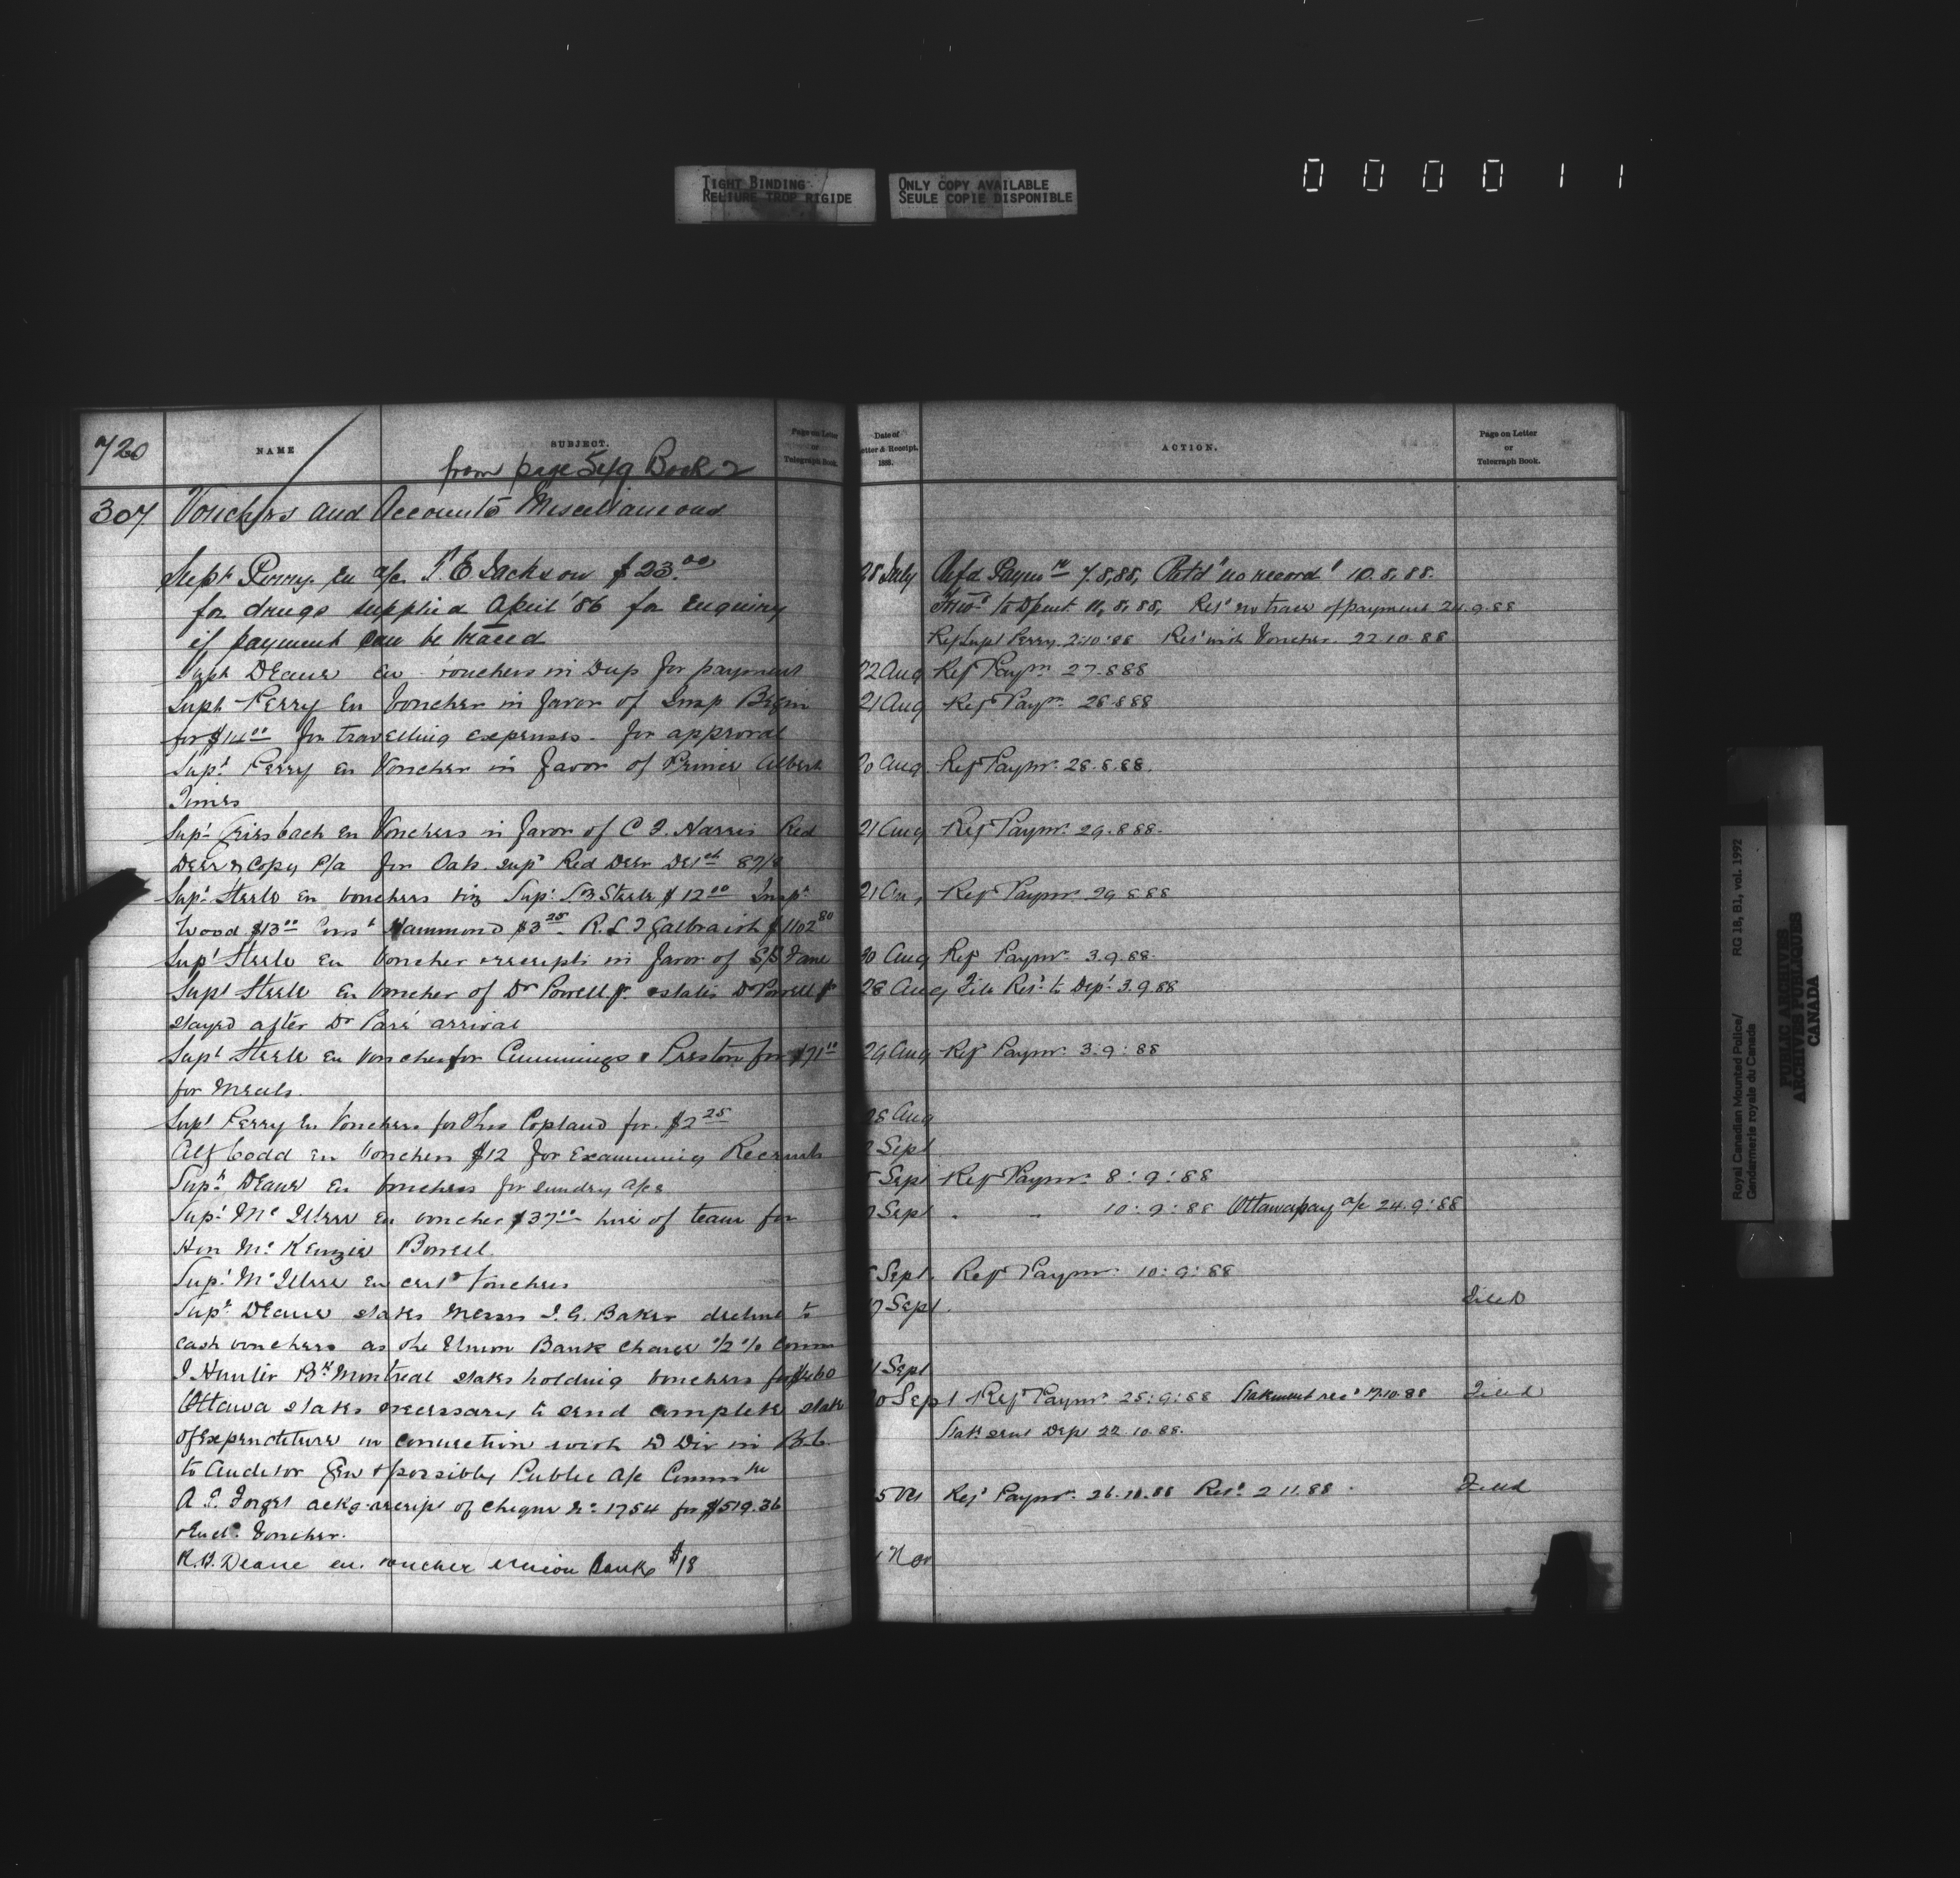 TIGHT BINDING
RELIURE TROP RIGIDE
ONLY COPY AVAILABLE
SEULE COPIE DISPONIBLE
0 0 0 0 1 1
720
NAME
SUBJECT.
Page on Letter
or
Telegraph Book.
from page 549 Book 2
307 Vouchers and Accounts Miscellaneous
Supt Perry. En a/c T. E Jackson $23.00
for drugs supplied April '86 for Enquiry
if payment can be traced
Supt Deane En vouchers in Dup for payment
Supt Perry En Voucher in favor of Insp Begin
for $14.00 for travelling expenses. for approval
Supt Perry En Voucher in favor of Prince Albert
Times
Supt Griesbach En Vouchers in favor of C F. Harris Red
Deer & Copy C/a for Oats. Supd Red Deer Detch 87/8
Supt Steele En vouchers viz Supt S.B. Steele $12.00 Inspr
Wood $13.00 Const Hammond $3.25 R. L T Galbraith $1102.80
Supt Steele En Voucher & receipts in favor of Fane
Supt Steele En Voucher of Dr Powell Jr. & states Dr Powell Jr
stayed after Dr Paré arrival
Supt Steele En Voucher for Cummings & Preston for $71.10
for Meals.
Supt Perry En Vouchers for Thos Copland for. $2.25
Alf Codd En Vouchers $12 for Examining Recruits
Supt Deane En Vouchers for sundry a/cs
Supt Mc Illree En voucher $37.00 hire of team for
Hon Mc Kenzie Bowell.
Supt Mc Illree En certd Vouchers
Supt Deane states Messrs I. G. Baker decline to
cash vouchers as the Union Bank charge 1/2 % Comm
J Hunter Bk Montreal states holding vouchers for $460
Ottawa states necessary to send complete state
of Expenditure in connection with D Div in B.C.
to Auditor Gen & possibly Public a/c Committee
A. E. Forget ackg receipt of cheque No 1754 for $519.36
& Encl. Voucher.
R. B. Deane en. voucher Union Bank $18
Date of
Letter & Receipt.
188.
ACTION.
Page on Letter
or
Telegraph Book.
28 July Refd Paymr 7.8.88, Retd "no record" 10.8.88.
Fwd to Dpment 11.8.88, Retd no trace of payment 24.9.88
Ref Supt Perry. 2.10.88 Retd with Voucher. 22.10.88
22 Aug Refd Paymr 27.8.88
21 Aug Refd Paymr 28.8.88
20 Aug Refd Paymr. 28.8.88.
21 Aug Refd Paymr. 29.8.88.
21 Au, Refd Paymr. 29.8.88
30 Aug Refd Paymr. 3.9.88.
28 Aug File Retd to Dept 3.9.88
29 Aug Refd Paymr. 3:9:88
28 Aug
2 Sept
5 Sept Refd Paymr. 8:9:88
7 Sept " " 10:9:88 Ottawa pay a/c 24.9:88
8 Sept. Refd Paymr. 10:9:88
17 Sept. Filed
21 Sept
20 Sept Refd Paymr. 25:9:88 Statement recd 17.10.88 Filed
State sent Dept 22.10.88.
25 Oct Refd Paymr. 26.10.88 Retd 2.11.88. Filed
1 Nov
Royal Canadian Mounted Police/ RG 18, B1, vol. 1992
Gendarmerie royale du Canada
PUBLIC ARCHIVES
ARCHIVES PUBLIQUES
CANADA